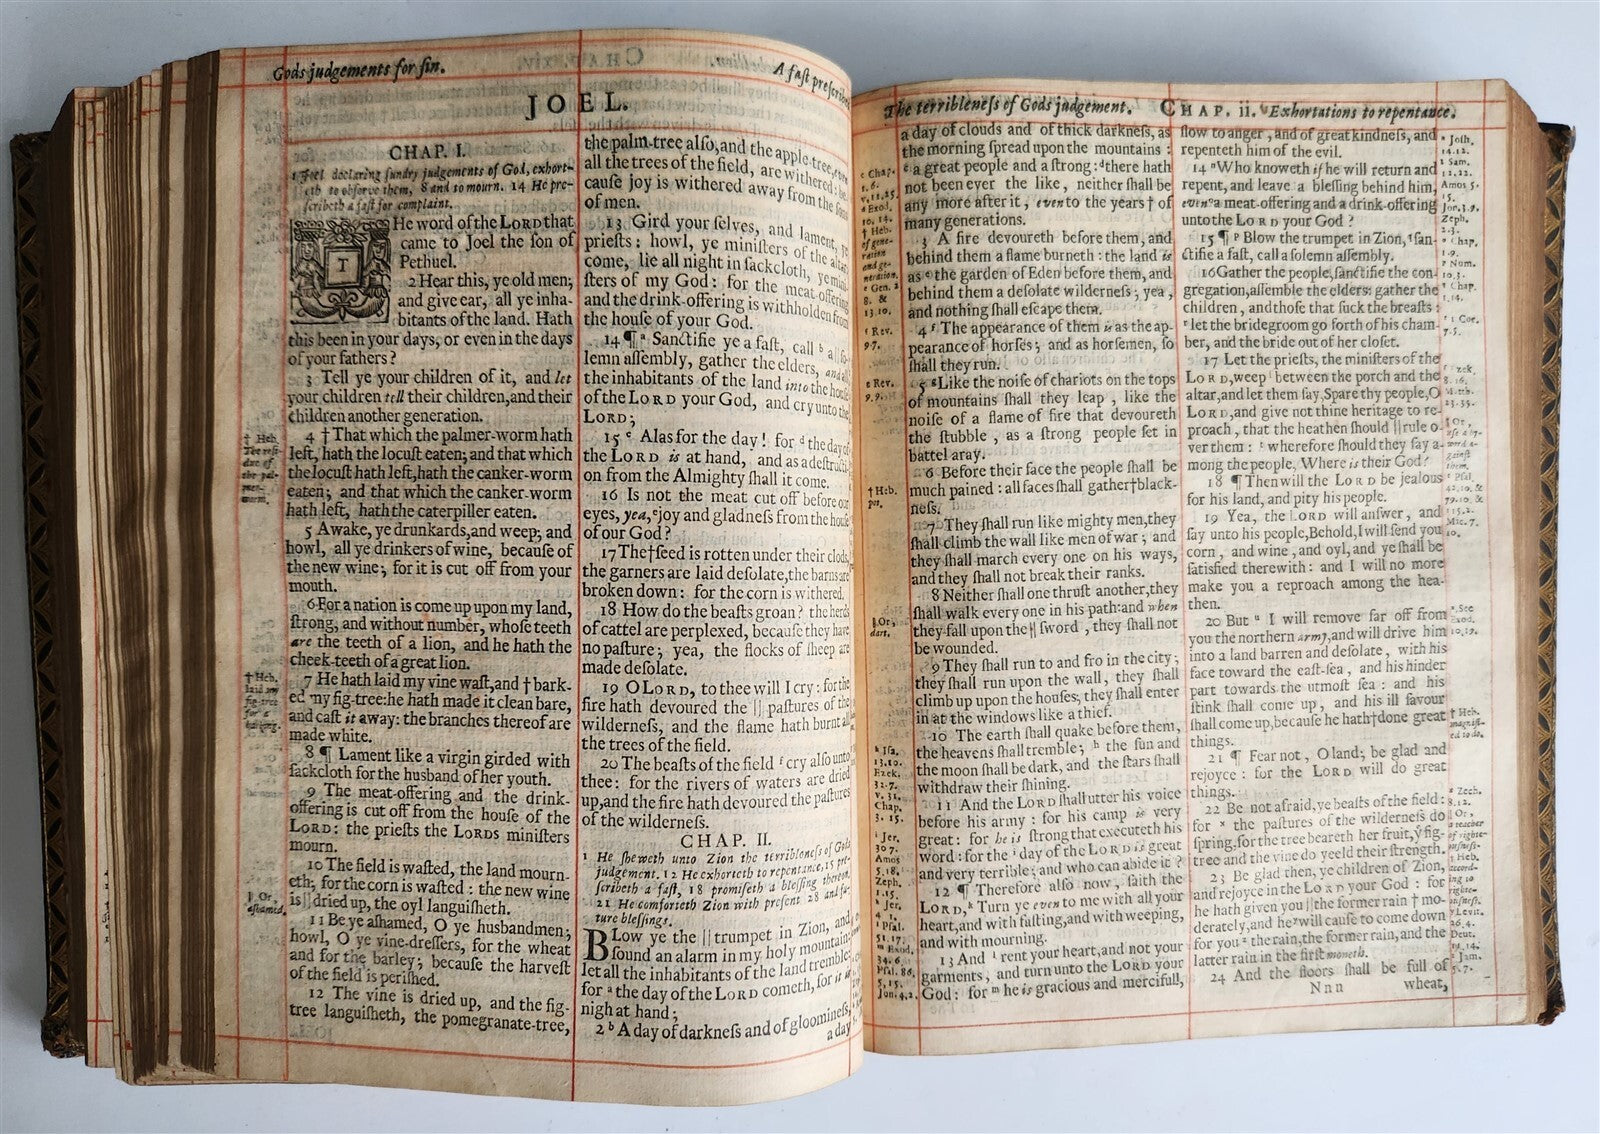 Gods judgements for sin.
JOEL.
A fast prescribed
CHAP. I.
1 Joel declaring sundry judgements of God, exhort-
eth to observe them, 8 and to mourn. 14 He pre-
scribeth a fast for complaint.
THe word of the LORD that
came to Joel the son of
Pethuel.
2 Hear this, ye old men;
and give ear, all ye inha-
bitants of the land. Hath
this been in your days, or even in the days
of your fathers?
3 Tell ye your children of it, and let
your children tell their children, and their
children another generation.
4 † That which the palmer-worm hath
left, hath the locust eaten; and that which
the locust hath left, hath the canker-worm
eaten; and that which the canker-worm
hath left, hath the caterpiller eaten.
5 Awake, ye drunkards, and weep; and
howl, all ye drinkers of wine, because of
the new wine; for it is cut off from your
mouth.
6 For a nation is come up upon my land,
strong, and without number, whose teeth
are the teeth of a lion, and he hath the
cheek-teeth of a great lion.
7 He hath laid my vine wast, and † bark-
ed my fig-tree: he hath made it clean bare,
and cast it away: the branches thereof are
made white.
8 ¶ Lament like a virgin girded with
sackcloth for the husband of her youth.
9 The meat-offering and the drink-
offering is cut off from the house of the
LORD: the priests the LORDS ministers
mourn.
10 The field is wasted, the land mourn-
eth; for the corn is wasted: the new wine
is || dried up, the oyl languisheth.
11 Be ye ashamed, O ye husbandmen;
howl, O ye vine-dressers, for the wheat
and for the barley; because the harvest
of the field is perished.
12 The vine is dried up, and the fig-
tree languisheth, the pomegranate-tree,
† Heb.
The resi-
due of
the pal-
mer-
worm.
† Heb.
laid my
fig-tree
for a
barking.
|| Or,
ashamed.
the palm-tree also, and the apple-tree, even
all the trees of the field, are withered: be-
cause joy is withered away from the sons
of men.
13 Gird your selves, and lament, ye
priests: howl, ye ministers of the altar:
come, lie all night in sackcloth, ye mini-
sters of my God: for the meat-offering
and the drink-offering is withholden from
the house of your God.
14 ¶ a Sanctifie ye a fast, call b a || so-
lemn assembly, gather the elders, and all
the inhabitants of the land into the house
of the LORD your God, and cry unto the
LORD;
15 c Alas for the day! for d the day of
the LORD is at hand, and as a destruction
from the Almighty shall it come.
16 Is not the meat cut off before our
eyes, yea, e joy and gladness from the house
of our God?
17 The † seed is rotten under their clods,
the garners are laid desolate, the barns are
broken down: for the corn is withered.
18 How do the beasts groan? the herds
of cattel are perplexed, because they have
no pasture; yea, the flocks of sheep are
made desolate.
19 O LORD, to thee will I cry: for the
fire hath devoured the || pastures of the
wilderness, and the flame hath burnt all
the trees of the field.
20 The beasts of the field f cry also unto
thee: for the rivers of waters are dried
up, and the fire hath devoured the pastures
of the wilderness.
CHAP. II.
1 He sheweth unto Zion the terribleness of Gods
judgement. 12 He exhorteth to repentance, 15 pre-
scribeth a fast, 18 promiseth a blessing thereon.
21 He comforteth Zion with present 28 and fu-
ture blessings.
BLow ye the || trumpet in Zion, and
sound an alarm in my holy mountain:
let all the inhabitants of the land tremble:
for a the day of the LORD cometh, for it is
nigh at hand;
2 b A day of darkness and of gloominess,
a day
The terribleness of Gods judgement. CHAP. ii. Exhortations to repentance.
a day of clouds and of thick darkness, as
the morning spread upon the mountains:
c a great people and a strong: d there hath
not been ever the like, neither shall be
any more after it, even to the years † of
many generations.
3 A fire devoureth before them, and
behind them a flame burneth: the land is
as e the garden of Eden before them, and
behind them a desolate wilderness; yea,
and nothing shall escape them.
4 f The appearance of them is as the ap-
pearance of horses; and as horsemen, so
shall they run.
5 g Like the noise of chariots on the tops
of mountains shall they leap, like the
noise of a flame of fire that devoureth
the stubble, as a strong people set in
battel aray.
6 Before their face the people shall be
much pained: all faces shall gather † black-
ness.
7 They shall run like mighty men, they
shall climb the wall like men of war; and
they shall march every one on his ways,
and they shall not break their ranks.
8 Neither shall one thrust another, they
shall walk every one in his path: and when
they fall upon the || sword, they shall not
be wounded.
9 They shall run to and fro in the city;
they shall run upon the wall, they shall
climb up upon the houses; they shall enter
in at the windows like a thief.
10 The earth shall quake before them,
the heavens shall tremble; h the sun and
the moon shall be dark, and the stars shall
withdraw their shining.
11 And the LORD shall utter his voice
before his army: for his camp is very
great: for he is strong that executeth his
word: for the i day of the LORD is great
and very terrible; and who can abide it?
12 ¶ Therefore also now, saith the
LORD, k Turn ye even to me with all your
heart, and with fasting, and with weeping,
and with mourning.
13 And l rent your heart, and not your
garments, and turn unto the LORD your
God: for m he is gracious and merciful,
c Chap.
1. 6.
d Exod.
10. 14.
† Heb.
of gene-
ration
and ge-
neration.
e Gen. 2
8. &
13.10.
f Rev.
9.7.
g Rev.
9.9.
† Heb.
pot.
|| Or,
dart.
h Isa.
13.10.
Ezek.
32.7.
v. 31.
Chap.
3. 15.
i Jer.
30 7.
Amos
5.18.
Zeph.
1.15.
k Jer.
4. 1.
l Psal.
51.17.
m Exod.
34.6.
Psal. 86.
5, 15.
Jon. 4.2.
slow to anger, and of great kindness, and
repenteth him of the evil.
14 n Who knoweth if he will return and
repent, and leave a blessing behind him,
even o a meat-offering and a drink-offering
unto the LORD your God?
15 ¶ p Blow the trumpet in Zion, q san-
ctifie a fast, call a solemn assembly.
16 Gather the people, sanctifie the con-
gregation, assemble the elders: gather the
children, and those that suck the breasts:
let the bridegroom go forth of his cham-
ber, and the bride out of her closet.
17 Let the priests, the ministers of the
LORD, weep between the porch and the
altar, and let them say, Spare thy people, O
LORD, and give not thine heritage to re-
proach, that the heathen should || rule o-
ver them: t wherefore should they say a-
mong the people, Where is their God?
18 ¶ Then will the LORD be jealous
for his land, and pity his people.
19 Yea, the LORD will answer, and
say unto his people, Behold, I will send you
corn, and wine, and oyl, and ye shall be
satisfied therewith: and I will no more
make you a reproach among the hea-
then.
20 But u I will remove far off from
you the northern army, and will drive him
into a land barren and desolate, with his
face toward the east-sea, and his hinder
part towards the utmost sea: and his
stink shall come up, and his ill savour
shall come up, because he hath † done great
things.
21 ¶ Fear not, O land; be glad and
rejoyce: for the LORD will do great
things.
22 Be not afraid, ye beasts of the field:
for x the pastures of the wilderness do
spring, for the tree beareth her fruit, yͤ fig-
tree and the vine do yeeld their strength.
23 Be glad then, ye children of Zion,
and rejoyce in the LORD your God: for
he hath given you || the former rain † mo-
derately, and he y will cause to come down
for you z the rain, the former rain, and the
latter rain in the first moneth.
24 And the floors shall be full of
Nnn wheat,
Josh.
14.12.
1 Sam.
Amos 5.
15.
Jon. 3.9.
Zeph.
2.3.
Chap.
1.9.
Nom.
10.3.
Chap.
1.14.
1 Cor.
7.5.
8.16.
Matth.
23.35.
|| Or,
them.
Psal.
42.10. &
79.10. &
115.2.
Mic. 7.
10.
See
Exod.
10.19.
† Heb.
magnifi-
ed to do.
x Zech.
8.12.
|| Or,
a teacher
of righte-
ousness.
† Heb.
accord-
ing to
righte-
ousness.
y Levit.
26.4.
Deut.
Jam.
5.7.